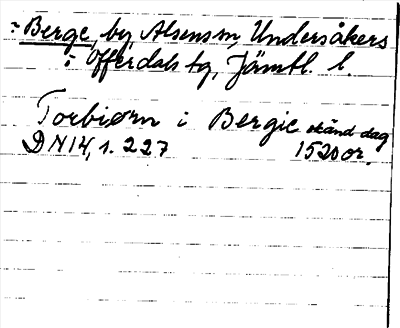 ÷ Berge, by, Alsens sn, Undersåkers
÷ Offerdals tg, Jämtl. l.
Torbiørn i Bergie odand dag
DN 14, 1. 227 1520 or.